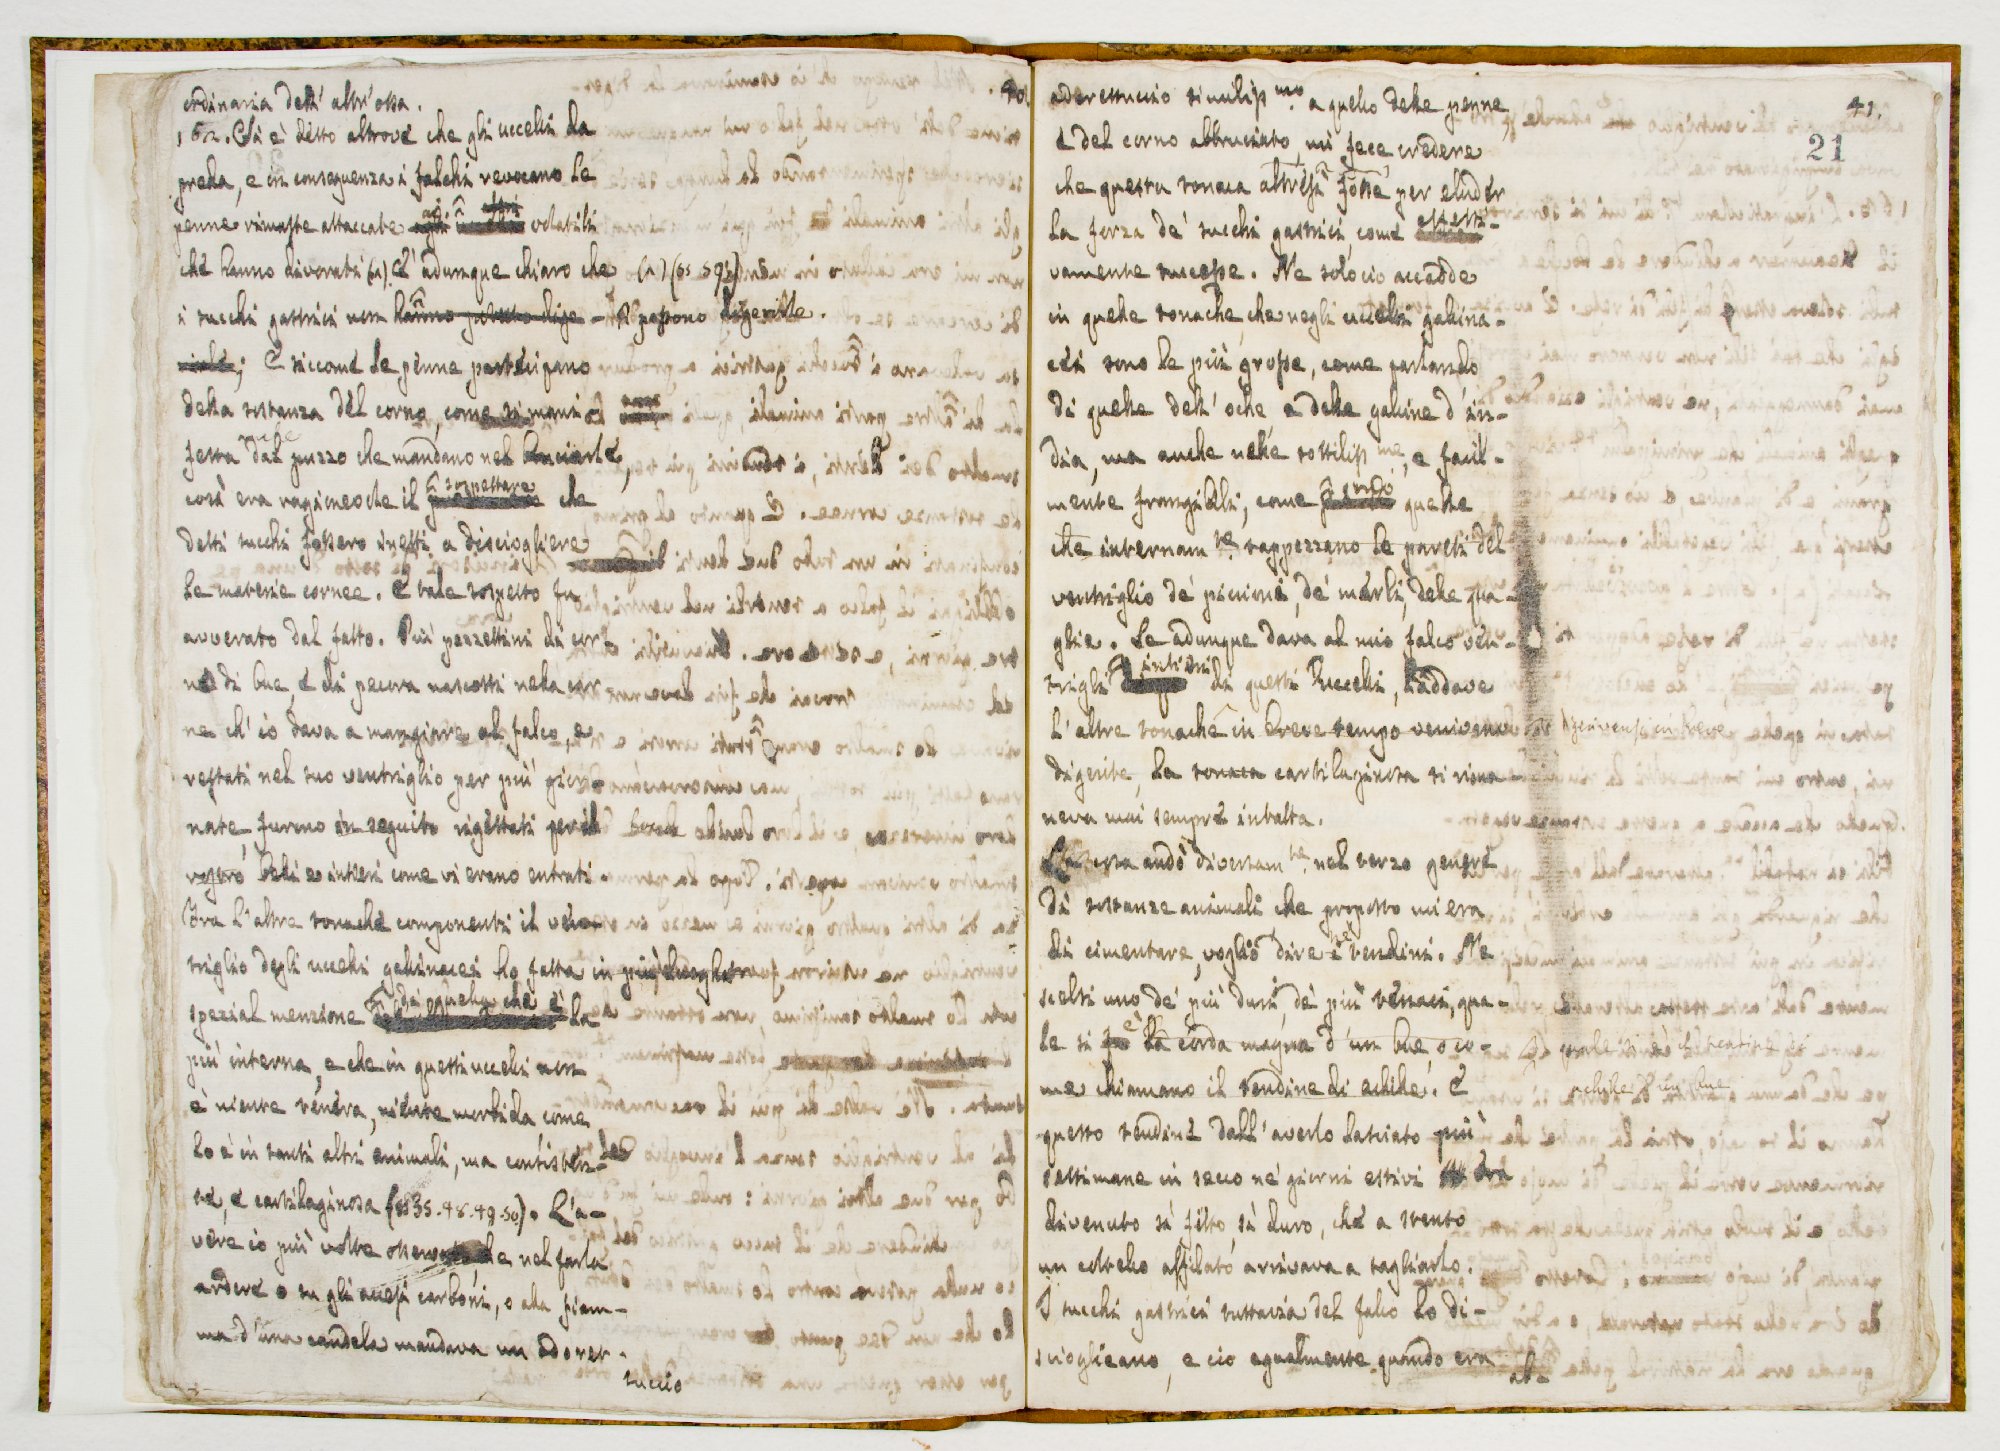 40.
ordinaria dell' altr'ossa.
162. Si è detto altrove che gli uccelli da
preda, e in conseguenza i falchi revocano le
penne rimaste attaccate ai altri volatili
che hanno divorati (a). E' adunque chiaro che (a) (§§ 59
i succhi gastrici non hanno potuto dige- li possono digerirle.
rirle; E siccome le penne partecipano
della sostanza del corno, come si mani
festa dal puzzo che mandano nel bruciarle,
così era ragionevole il sospettare che
detti succhi fossero inetti a disciogliere
le materie cornee. E tale sospetto fu
avverato dal fatto. Più pezzettini di cor
no di bue, e di pecora nascosti nella car
ne ch' io dava a mangiare al falco, e
restati nel suo ventriglio per più gior-
nate, furono in seguito rigettati per il
vomito belli e intieri come vi erano entrati.
Tra l'altre tonache componenti il ven-
triglio degli uccelli gallinacei ho fatta in più luoghi
spezial menzione di quella che è la
più interna, e che in questi uccelli non
è niente tenera, niente morbida come
lo è in tanti altri animali, ma consisten-
te, e cartilaginosa (§§ 35. 48. 49. 50). L'a-
vere io più volte osservato che nel farla
ardere o su gli accesi carboni, o alla fiam-
ma d'una candela mandava un odorer-
tuccio
41.
21
odorettuccio similiss.mo a quello delle penne,
e del corno abbruciato, mi fece credere
che questa tonaca altresì fosse per eluder
la forza de' succhi gastrici, come effetti-
vamente successe. Ne solo ciò accadde
in quelle tonache, che negli uccelli gallina-
cei sono le più grosse, come parlando
di quelle dell' oche, e delle galline d'in-
dia, ma anche nelle sottiliss.me, e facil-
mente frangibili, come sono quelle
che internam.te rappezzano le pareti del
ventriglio de' piccioni, de' merli, delle qua-
glie. Se adunque dava al mio falco ven-
trigli intieri di questi uccelli, laddove
l'altre tonache in breve tempo venivano digerivansi in breve
digerite, la tonaca cartilaginosa si rima-
neva mai sempre intatta.
La cosa andò diversam.te nel terzo genere
di sostanze animali che proposto mi era
di cimentare, voglio dire ne' tendini. Ne
scelsi uno de' più duri, de' più tenaci, qua-
le si è la corda magna d'un bue o co- quale si è il tendine di
me chiamano il tendine di achille. E achille d'un bue
questo tendine dall'averlo lasciato più
settimane in secco ne' giorni estivi era
divenuto sì fitto, sì duro, che a stento
un coltello affilato arrivava a tagliarlo.
I succhi gastrici tuttavia del falco lo di-
scioglieano, e ciò egualmente quando era